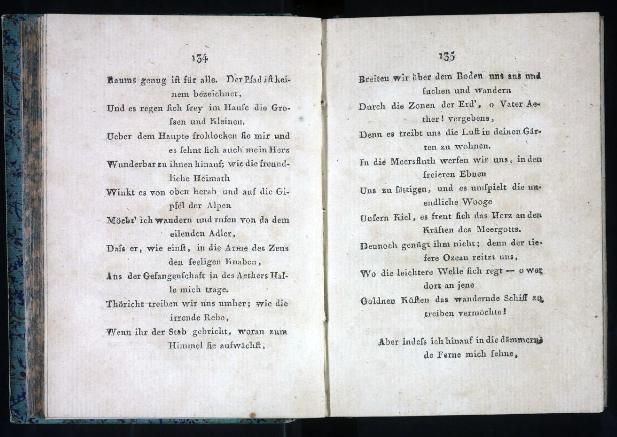 134
Raums genug ist für alle. Der Pfad ist kei-
nem bezeichnet,
Und es regen sich frey im Hause die Gro-
ssen und Kleinen.
Ueber dem Haupte frohlocken sie mir und
es sehnt sich auch mein Herz
Wunderbar zu ihnen hinauf; wie die freund-
liche Heimath
Winkt es von oben herab und auf die Gi-
pfel der Alpen
Möcht' ich wandern und rufen von da dem
eilenden Adler,
Dass er, wie einst, in die Arme des Zeus
den seeligen Knaben,
Aus der Gefangenschaft in des Aethers Hal-
le mich trage.
Thöricht treiben wir uns umher; wie die
irrende Rebe,
Wenn ihr der Stab gebricht, woran zum
Himmel sie aufwächst,
135
Breiten wir über dem Boden uns aus und
suchen und wandern
Durch die Zonen der Erd', o Vater Ae-
ther! vergebens,
Denn es treibt uns die Lust in deinen Gär-
ten zu wohnen.
In die Meersfluth werfen wir uns, in den
freieren Ebnen
Uns zu sättigen, und es umspielt die un-
endliche Wooge
Unsern Kiel, es freut sich das Herz an den
Kräften des Meergotts.
Dennoch genügt ihm nicht; denn der tie-
fere Ozean reitzt uns,
Wo die leichtere Welle sich regt — o wer
dort an jene
Goldnen Küsten das wandernde Schiff zu
treiben vermöchte!
Aber indess ich hinauf in die dämmernde
Ferne mich sehne,